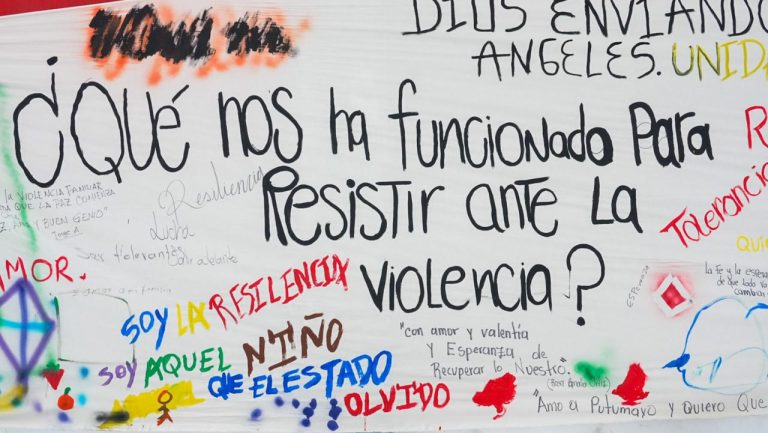 DIOS ENVIANDO
ANGELES. UNIDA
¿QUÉ NOS ha funcionado PARA
RESISTIR ANTE LA
VIOLENCIA?
la VIOLENCIA FAMILIAR
QUE LA PAZ COMIENZA
Y BUEN GENIO"
Resiliencia
Lucha
Ser tolerantes
AMOR.
Tolerancia
SOY LA RESILENCIA
SOY AQUEL NIÑO
QUE EL ESTADO
OLVIDO
"con amor y valentía
y Esperanza de
Recuperar lo Nuestro".
"Amo a Putumayo y Quiero Que
ESPERANZA
la Fe y la espera
de que todo va
cambiar